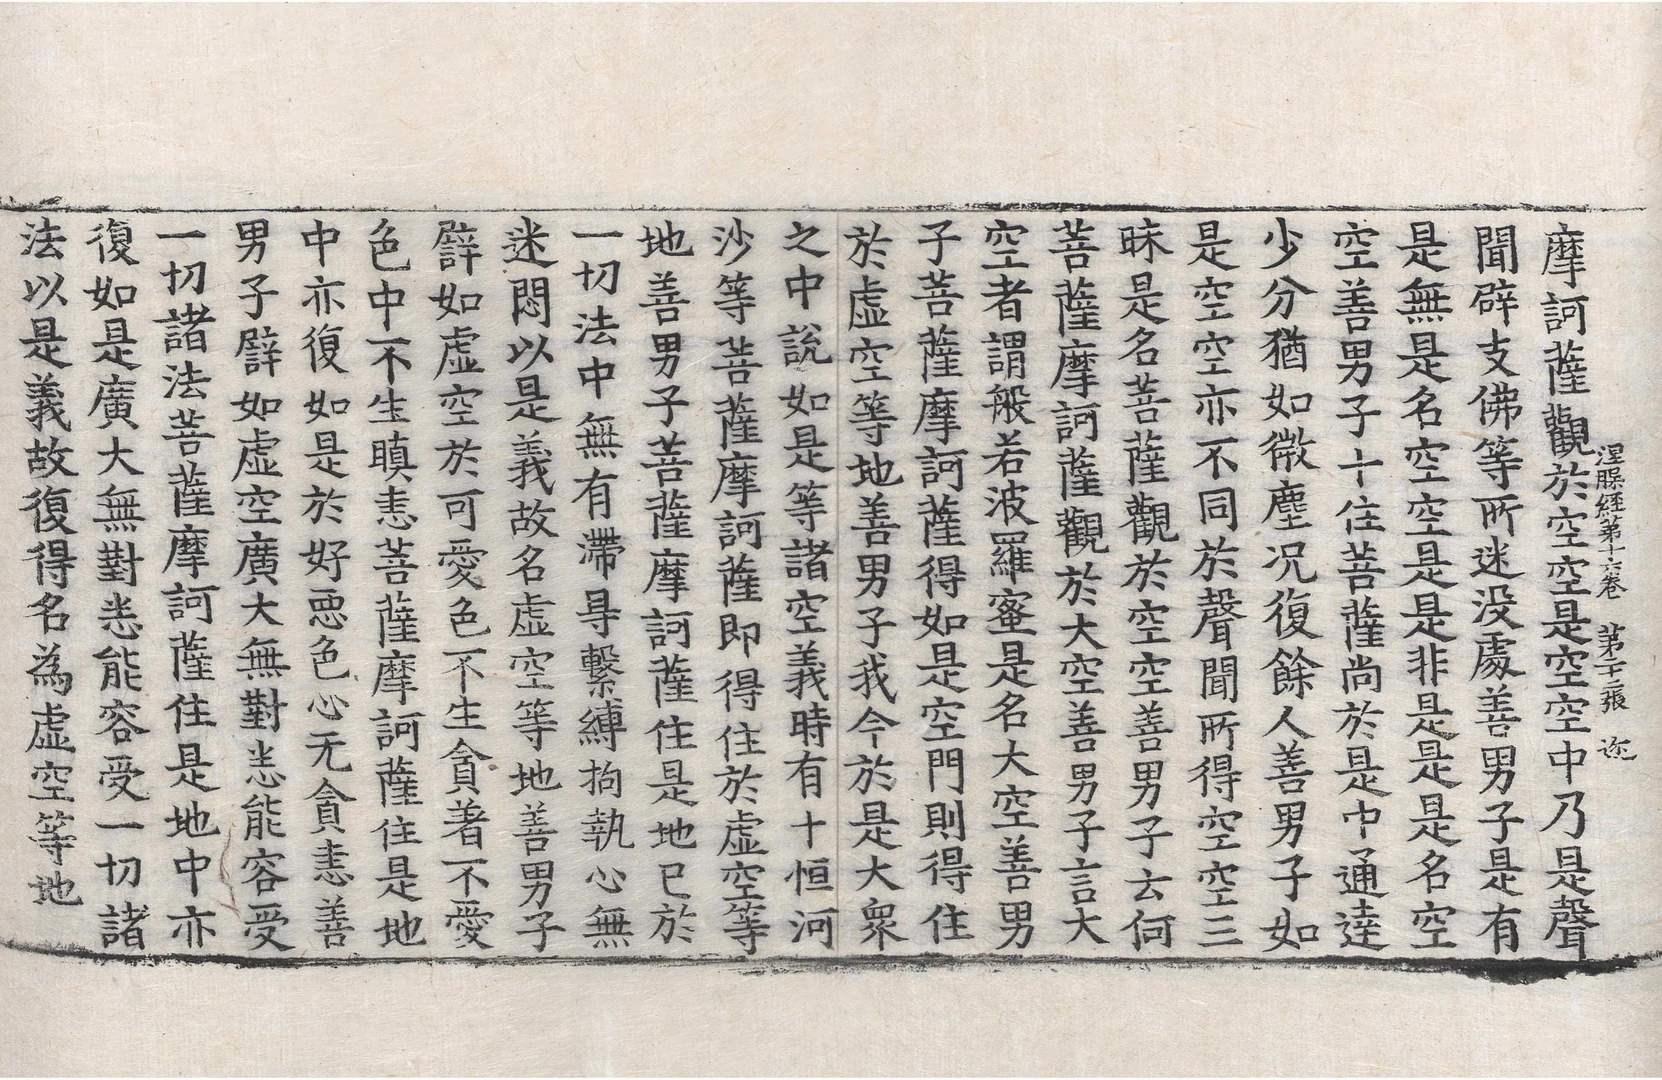 摩訶薩觀於空空是空空中乃是聲
涅槃經第十六卷 第二張 迩
聞辟支佛等所迷没處善男子是有
是無是名空空是是非是是是名空
空善男子十住菩薩尚於是中通達
少分猶如微塵况復餘人善男子如
是空空亦不同於聲聞所得空空三
昧是名菩薩觀於空空善男子云何
菩薩摩訶薩觀於大空善男子言大
空者謂般若波羅蜜是名大空善男
子菩薩摩訶薩得如是空門則得住
於虚空等地善男子我今於是大衆
之中說如是等諸空義時有十恒河
沙等菩薩摩訶薩即得住於虚空等
地善男子菩薩摩訶薩住是地已於
一切法中無有滯㝵繫縛拘執心無
迷悶以是義故名虚空等地善男子
譬如虚空於可愛色不生貪著不愛
色中不生瞋恚菩薩摩訶薩住是地
中亦復如是於好惡色心无貪恚善
男子譬如虚空廣大無對悉能容受
一切諸法菩薩摩訶薩住是地中亦
復如是廣大無對悉能容受一切諸
法以是義故復得名為虚空等地